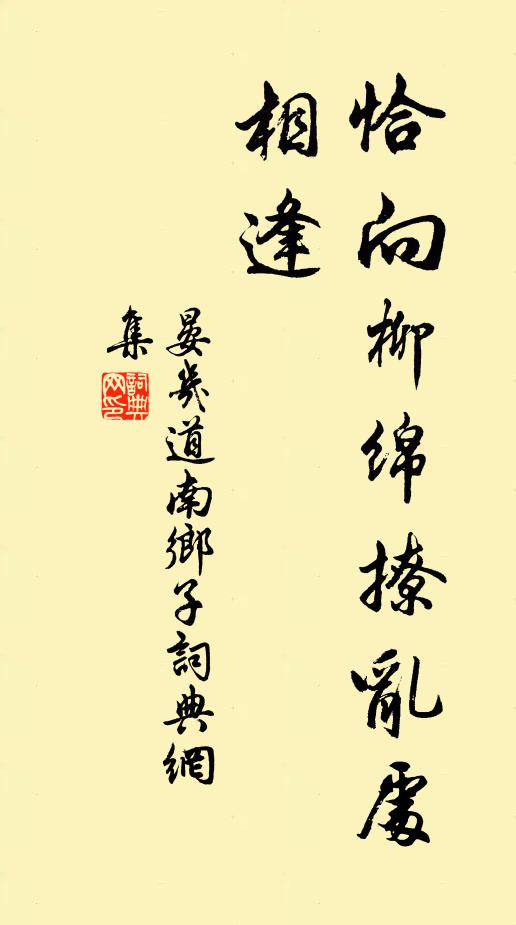 恰向柳綿撩亂處
相逢
晏幾道南鄉子詞典網
集
詞典
网印